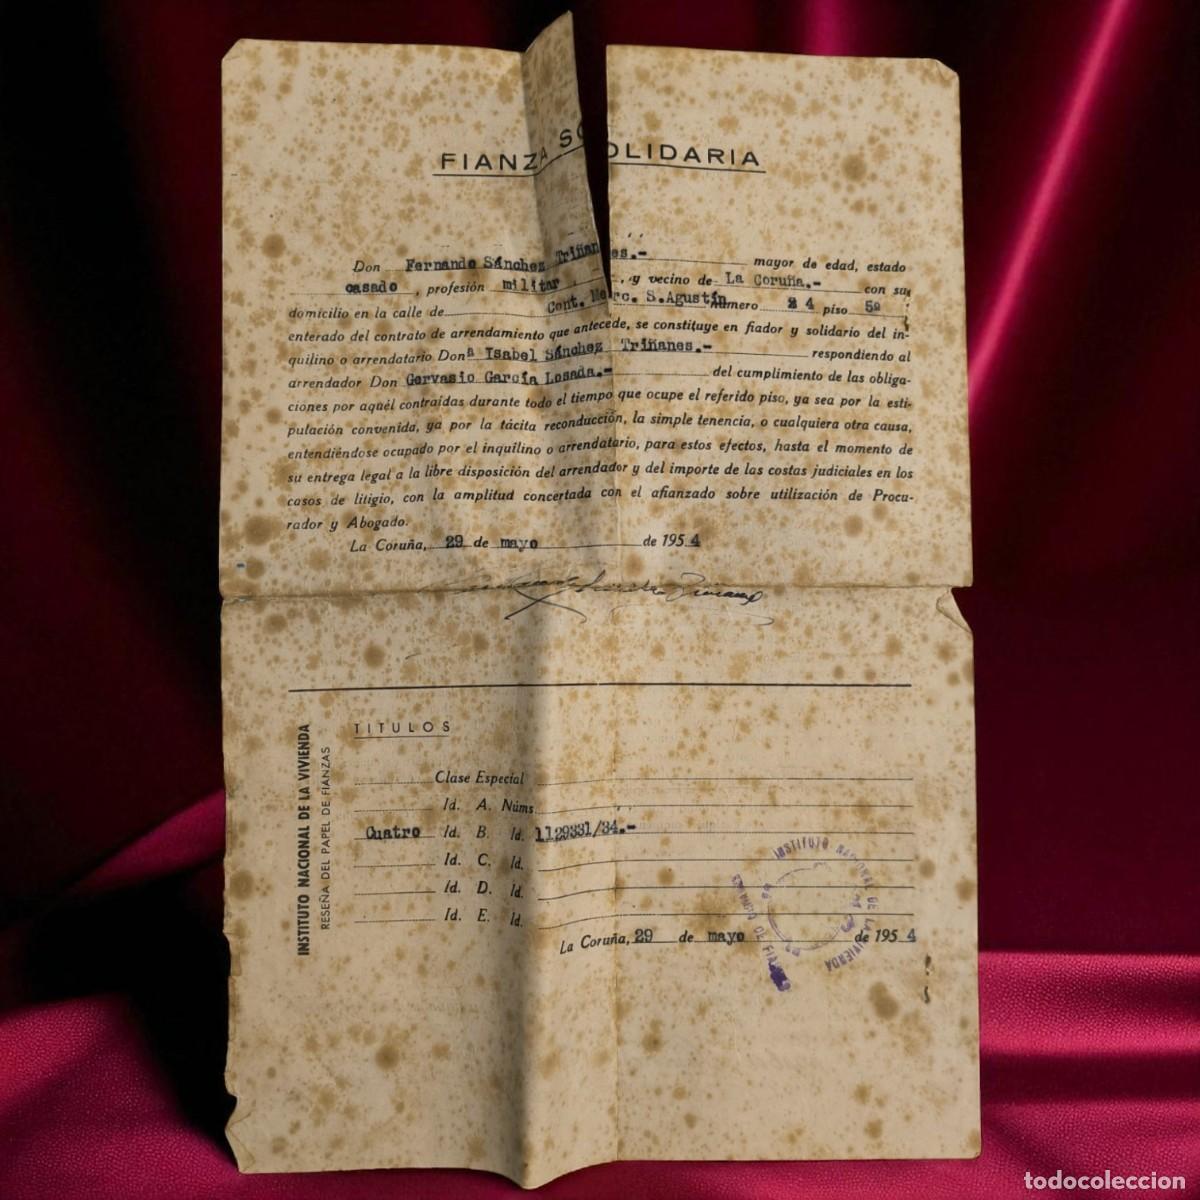 FIANZA SOLIDARIA
Don Fernando Sánchez Triñanes.- mayor de edad, estado
casado, profesión militar, y vecino de La Coruña.- con su
domicilio en la calle de Cont. Merc. S.Agustín número 24 piso 5º
enterado del contrato de arrendamiento que antecede, se constituye en fiador y solidario del in-
quilino o arrendatario Donª Ysabel Sánchez Triñanes.- respondiendo al
arrendador Don Gervasio García Losada.- del cumplimiento de las obliga-
ciones por aquél contraídas durante todo el tiempo que ocupe el referido piso, ya sea por la esti-
pulación convenida, ya por la tácita reconducción, la simple tenencia, o cualquiera otra causa,
entendiéndose ocupado por el inquilino o arrendatario, para estos efectos, hasta el momento de
su entrega legal a la libre disposición del arrendador y del importe de las costas judiciales en los
casos de litigio, con la amplitud concertada con el afianzado sobre utilización de Procu-
rador y Abogado.
La Coruña, 29 de mayo de 1954
Fernando Sánchez Triñanes
INSTITUTO NACIONAL DE LA VIVIENDA
RESEÑA DEL PAPEL DE FIANZAS
TITULOS
Clase Especial
Id. A. Núms.
Cuatro Id. B. Id. 1129331/34.-
Id. C. Id.
Id. D. Id.
Id. E. Id.
La Coruña, 29 de mayo de 1954
INSTITUTO NACIONAL DE LA VIVIENDA
DE FIANZAS
todocoleccion